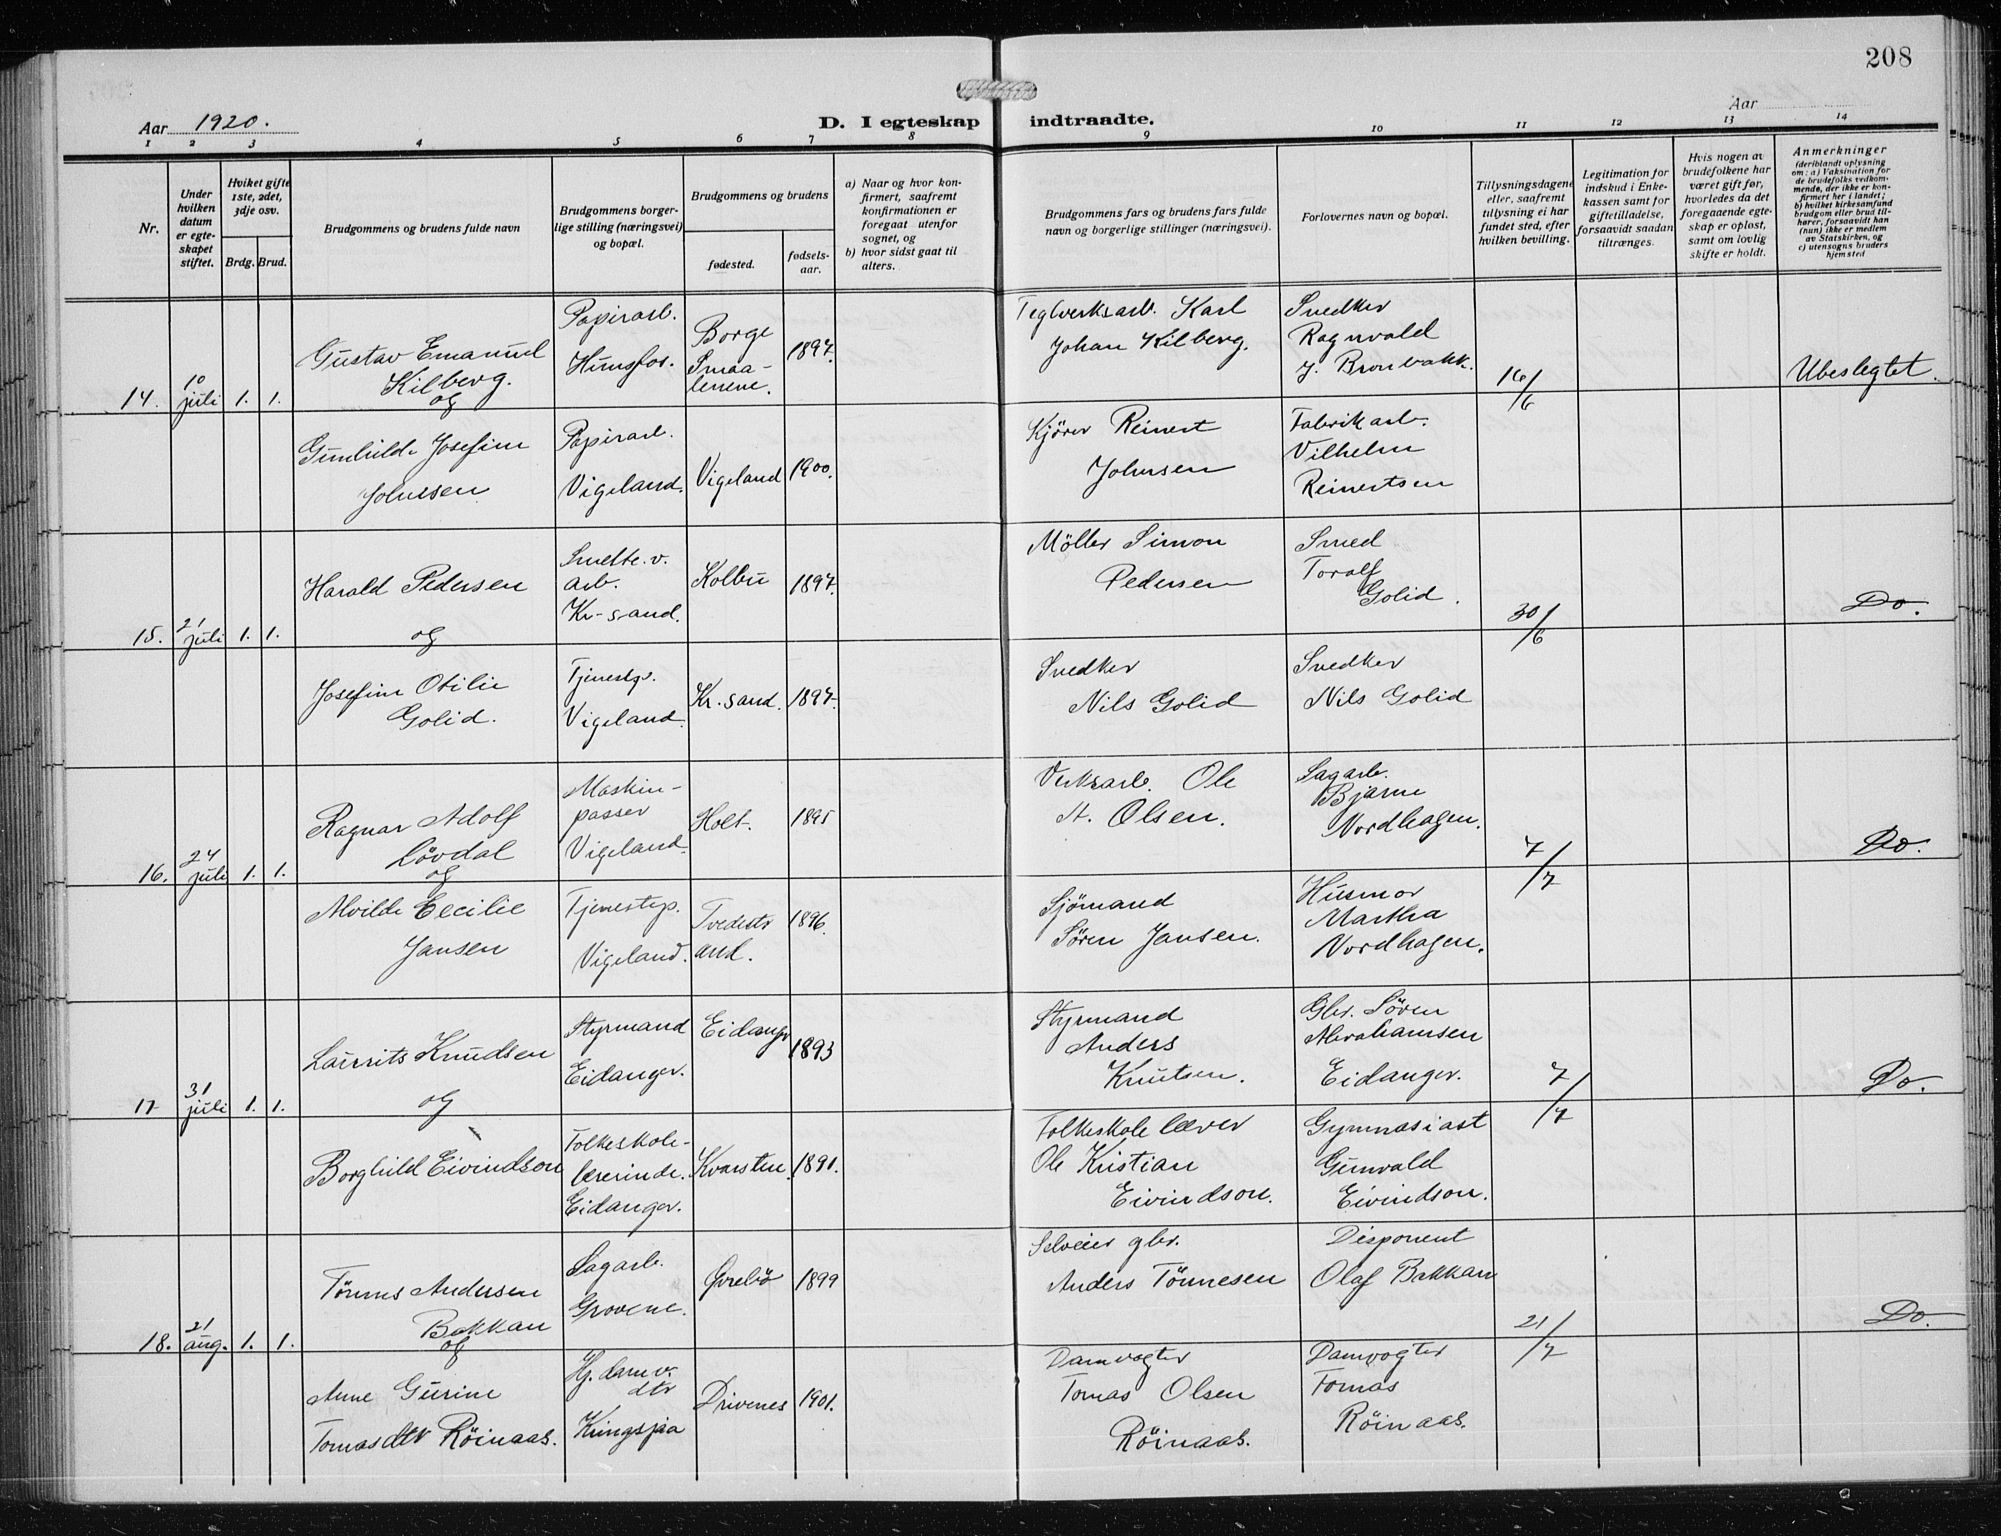 208
Aar 1920.
D. I egteskap indtraadte.
Aar
1 2 3 4 5 6 7 8 9 10 11 12 13 14
Nr.
Under hvilken datum er egteskapet stiftet.
Hviket gifte 1ste, 2det, 3dje osv.
Brdg. Brud.
Brudgommens og brudens fulde navn
Brudgommens borgerlige stilling (næringsvei) og bopæl.
Brudgommens og brudens
fødested.
fødselsaar.
a) Naar og hvor konfirmert, saafremt konfirmationen er foregaat utenfor sognet, og
b) hvor sidst gaat til alters.
Brudgommens fars og brudens fars fulde navn og borgerlige stillinger (næringsvei).
Forlovernes navn og bopæl.
Tillysningsdagene eller, saafremt tillysning ei har fundet sted, efter hvilken bevilling.
Legitimation for indskud i Enkekassen samt for giftetilladelse, forsaavidt saadan tiltrænges.
Hvis nogen av brudefolkene har været gift før, hvorledes da det foregaaende egteskap er opløst, samt om lovlig skifte er holdt.
Anmerkninger
(deriblandt oplysning om: a) Vaksination for de brudefolks vedkommende, der ikke er konfirmert her i landet; b) hvilket kirkesamfund brudgom eller brud tilhører, forsaavidt han (hun) ikke er medlem av Statskirken, og c) utensogns bruders hjemsted
14. 10 juli 1. 1.
Gustav Emanuel
Kilberg.
og
Papirarb.
Hunsfos.
Borge
Smaa-
lenene.
1897.
Teglverksarb. Karl
Johan Kilberg.
Snedker
Ragnvald
J. Bronbakk.
16/6
Ubeslegtet.
Gunhilde Josefine
Johnsen
Papirarb.
Vigeland.
Vigeland
1900.
Kjører Reinert
Johnsen
Fabrikarb.
Vilhelm
Reinertsen
15. 21 juli 1. 1.
Harald Pedersen
og
Smelte.v.
arb.
Kr-sand.
Kolbu
1897.
Møller Simon
Pedersen
Smed
Toralf
Golid.
30/6
Do.
Josefine Otilie
Golid.
Tjenestp.
Vigeland.
Kr.sand.
1897.
Snedker
Nils Golid
Snedker
Nils Golid
16. 24 juli 1. 1.
Ragnar Adolf
Lövdal
og
Maskin-
passer
Vigeland.
Holt.
1895
Verksarb. Ole
A. Olsen.
Sagarb.
Bjarne
Nordhagen.
7/7
Do.
Alvilde Cecilie
Jansen
Tjenestp.
Vigeland.
Tvedestr
and.
1896.
Sjømand
Søren Jansen.
Husmor
Martha
Nordhagen.
17 31 juli 1. 1.
Laurits Knudsen
og
Styrmand
Eidanger.
Eidanger
1893
Styrmand
Anders
Knutsen.
Gbr. Søren
Abrahamsen
Eidanger.
7/7
Do.
Borghild Eivindson
Folkeskole-
lærerinde.
Eidanger.
Kvarsten.
1891.
Folkeskole lærer
Ole Kristian
Eivindson.
Gymnasiast
Gunvald
Eivindson.
18. 21 aug. 1. 1.
Tønnes Andersen
Bakkan
og
Sagarb.
Grovene.
Øvrebö
1899
Selveier gbr.
Anders Tønnesen
Disponent
Olaf Bakkan
21/7
Do.
Anne Gurine
Tomasdtr Röinaas.
Hj. damv.
dtr
Kringsjaa
Drivenes
1901.
Damvogter
Tomas Olsen
Röinaas.
Damvogter
Tomas
Röinaas.